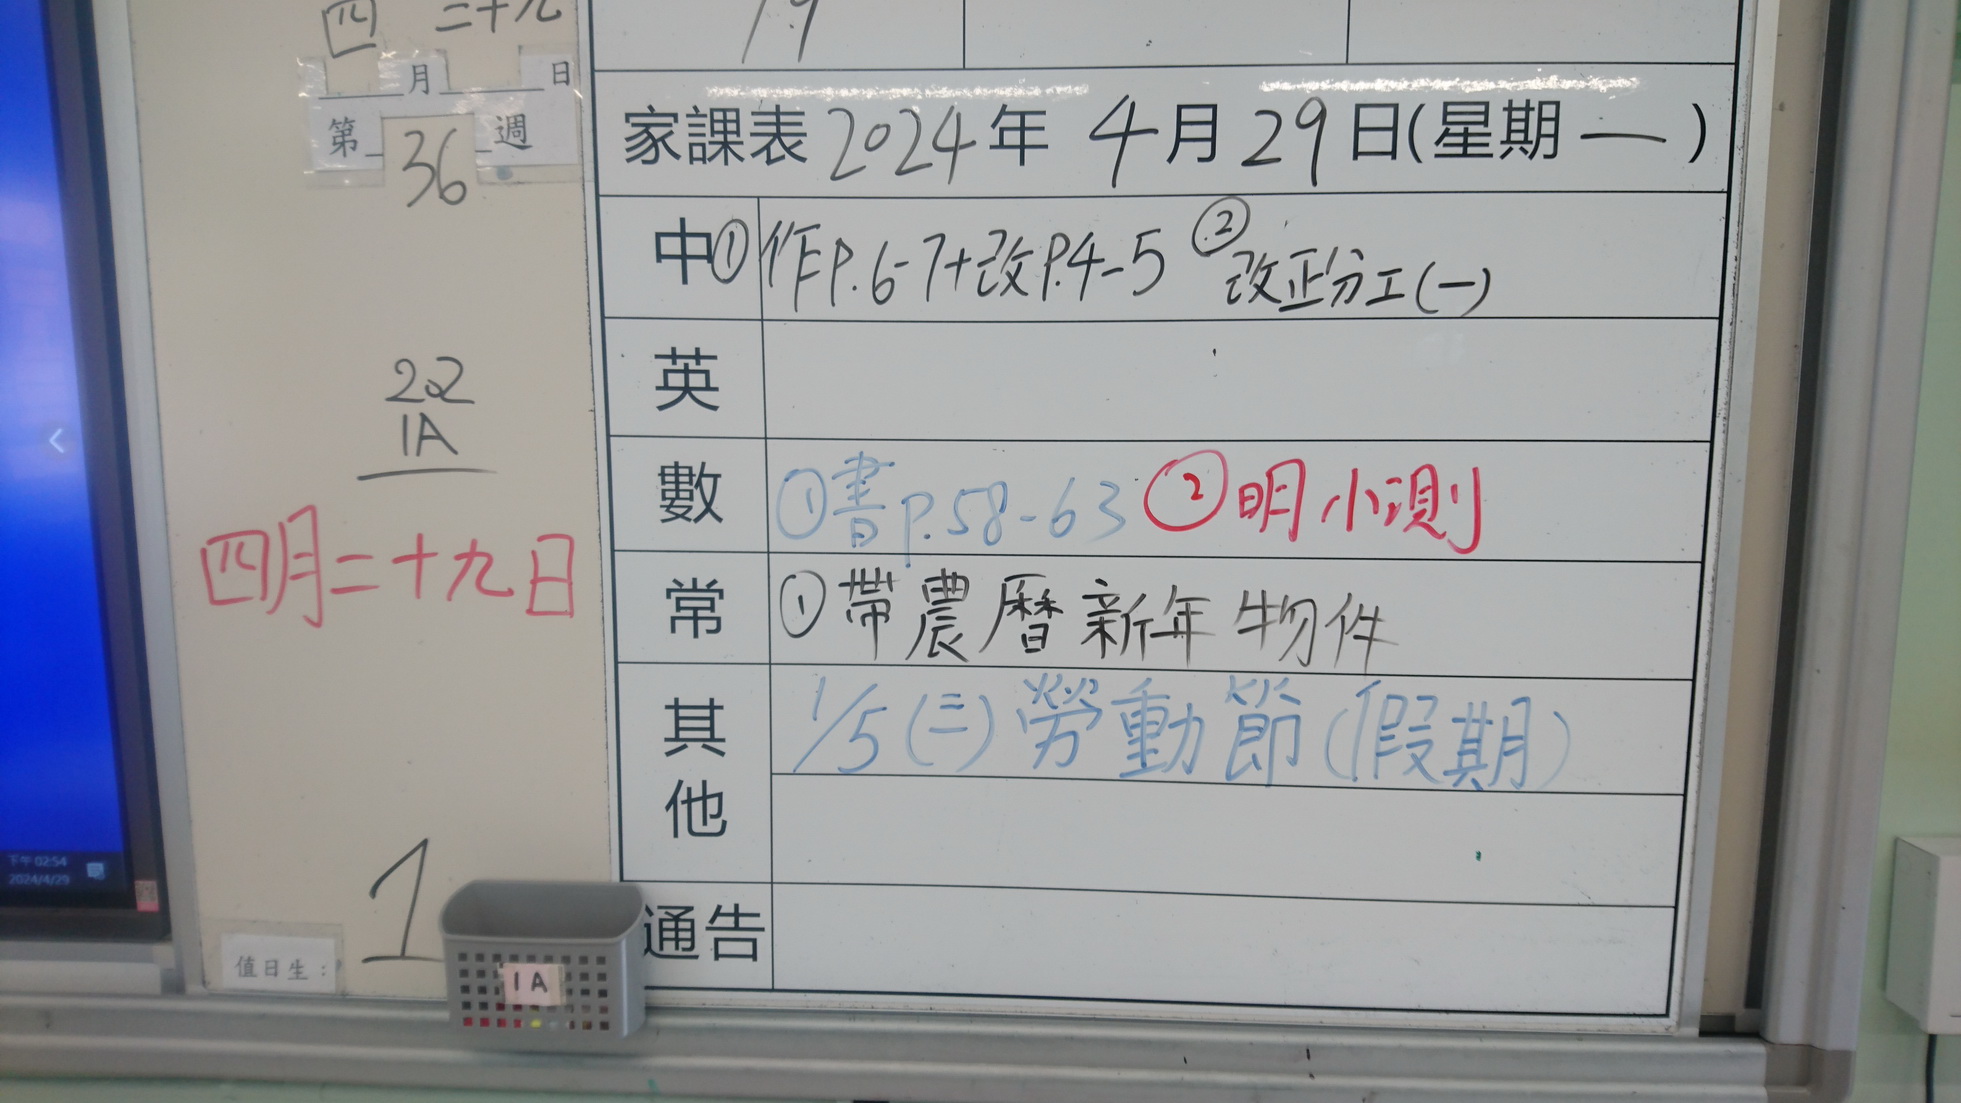 四 二十九
月 日
第 36 週
22
1A
四月二十九日
1
值日生：
1A
下午 02:54
2024/4/29
19
家課表 2024年 4月29日(星期一)
中 ①作P.6-7+改P.4-5 ②改正分工(一)
英
數 ①書p.58-63 ②明小測
常 ①帶農曆新年物件
其他 1/5(三)勞動節(假期)
通告